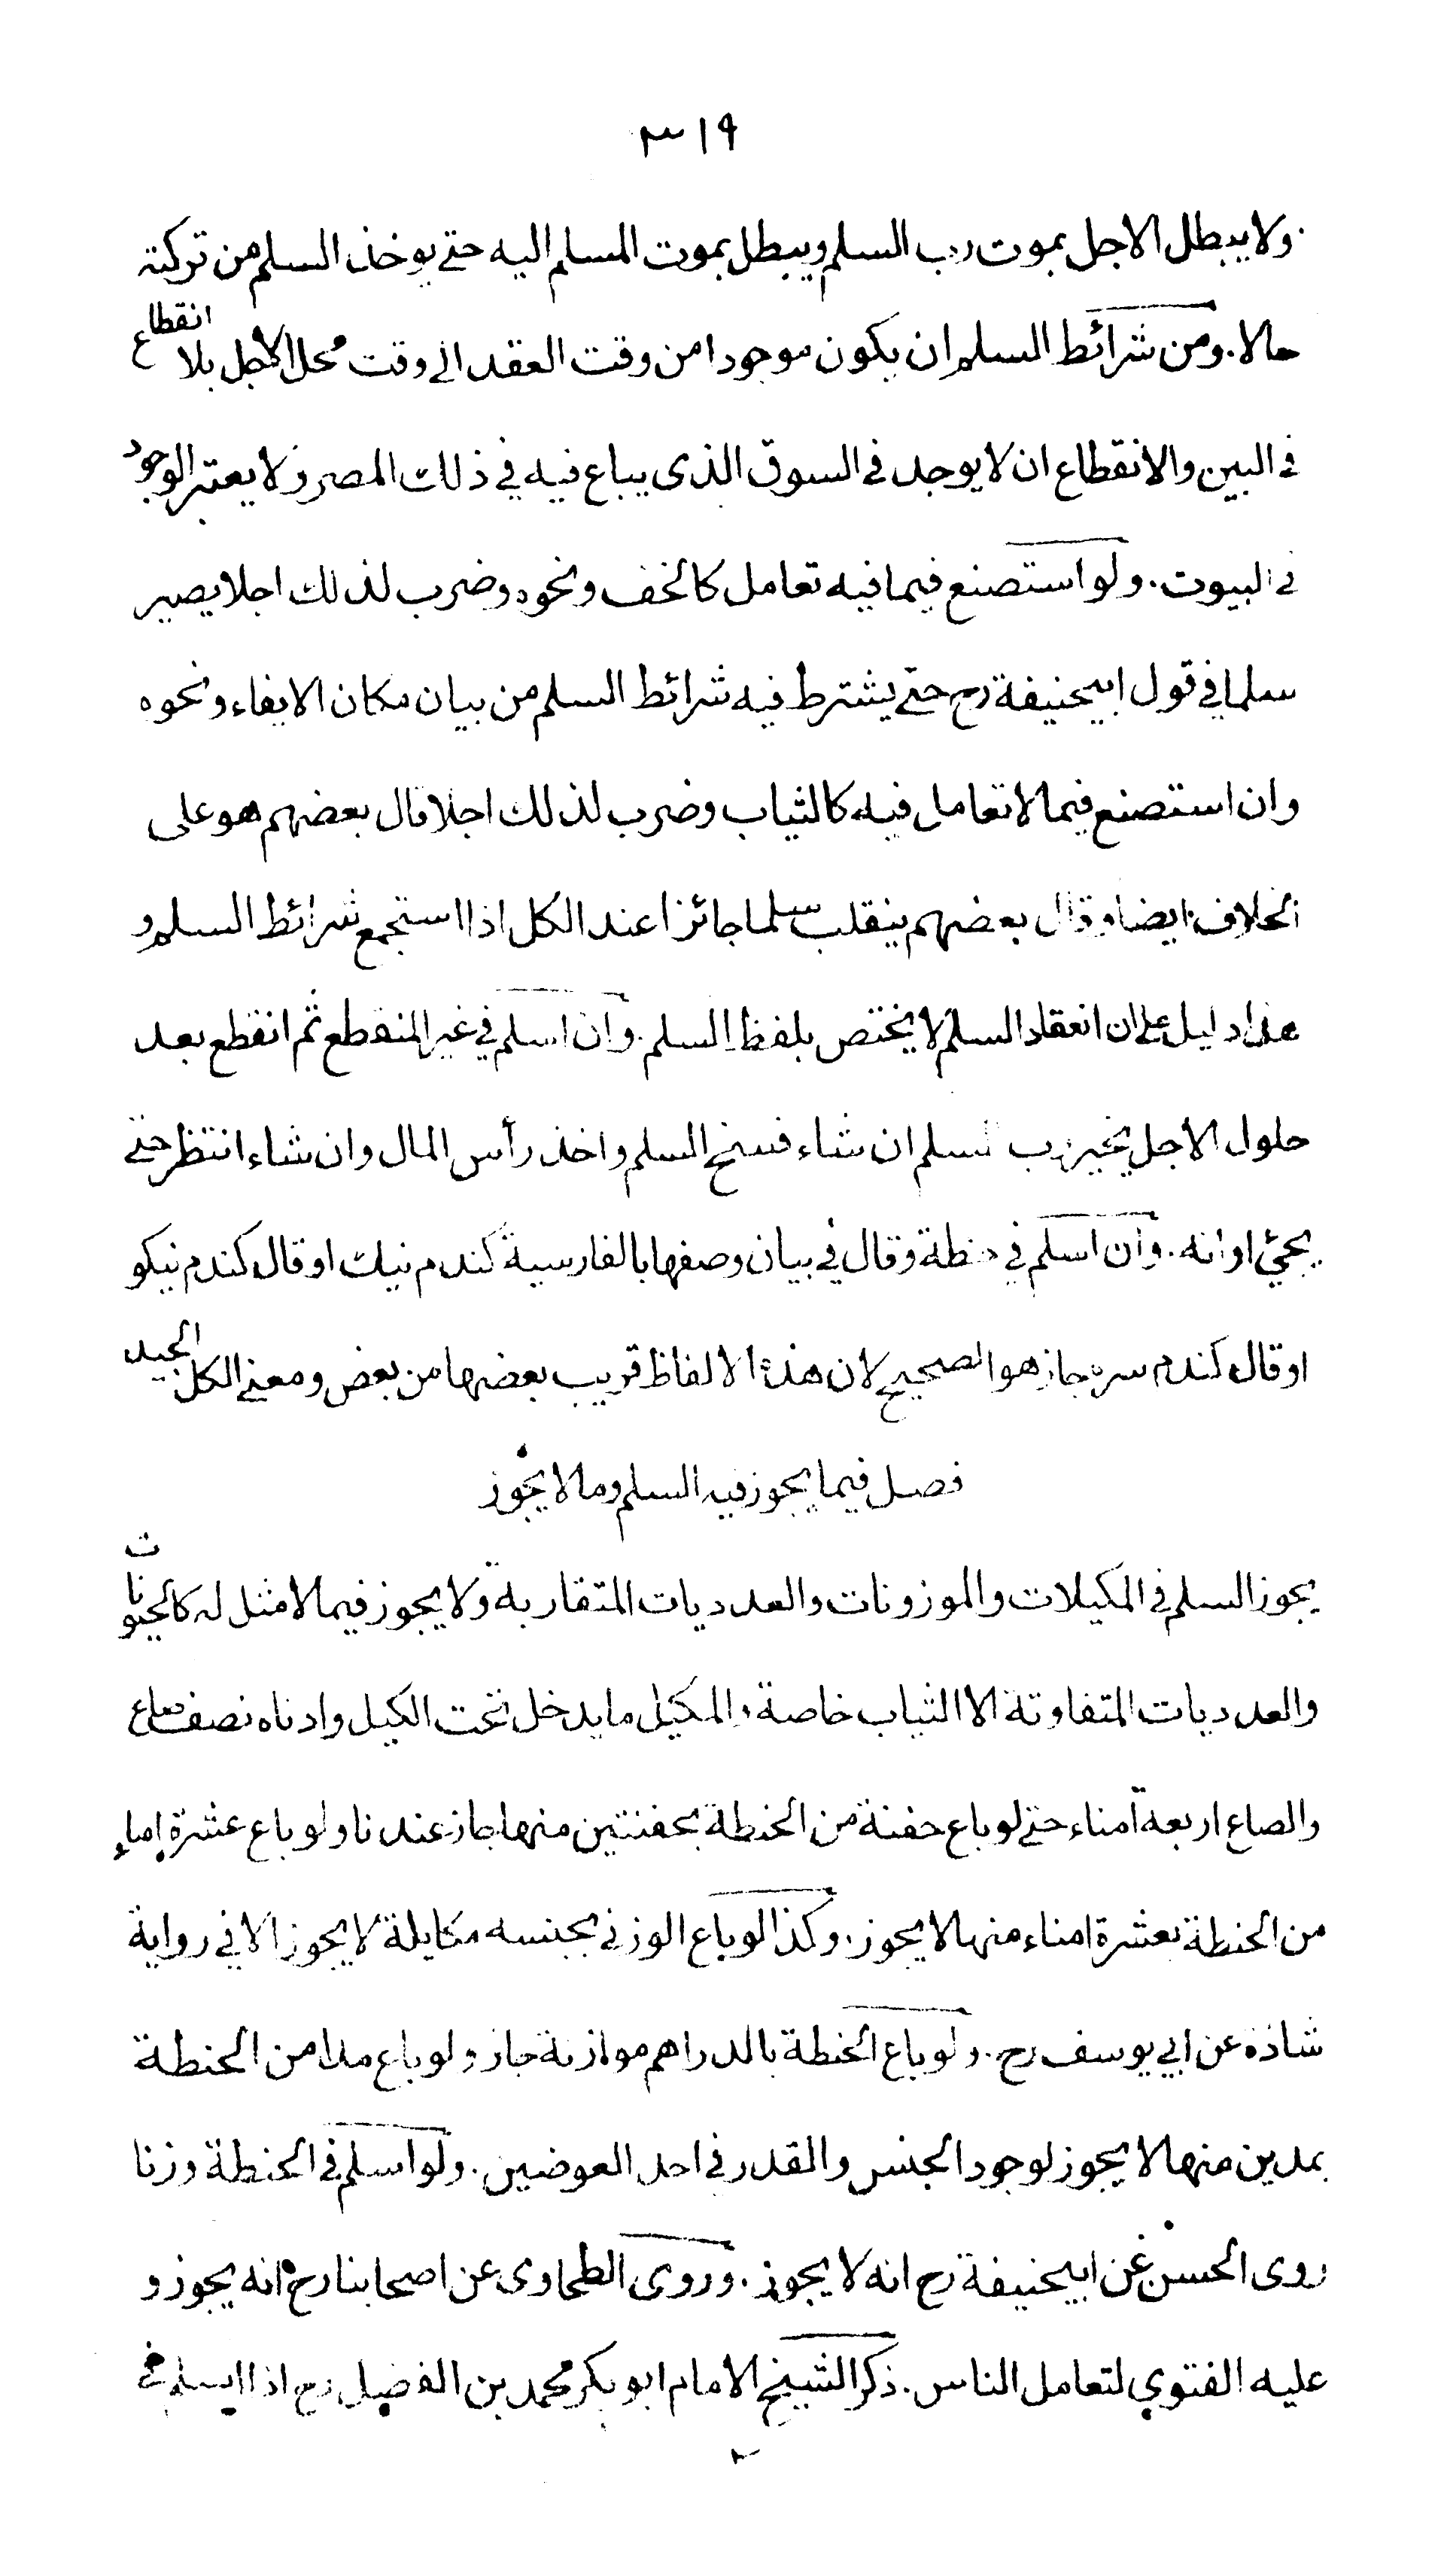 ٣١٩
ولا يبطل الاجل بموت رب السلم ويبطل بموت المسلم اليه حتى يوخذ السلم من تركته
حالا. ومن شرائط السلم ان يكون موجودا من وقت العقد الى وقت محل الاجل بلا انقطاع
فى البين والانقطاع ان لا يوجد فى السوق الذى يباع فيه في ذلك المصر ولا يعتبر الوجود
فى البيوت. ولو استصنع فيما فيه تعامل كالخف ونحوه وضرب لذلك اجلا يصير
سلما في قول ابيحنيفة رح حتى يشترط فيه شرائط السلم من بيان مكان الايفاء ونحوه
وان استصنع فيما لا تعامل فيه كالثياب وضرب لذلك اجلا قال بعضهم هو على
الخلاف ايضا وقال بعضهم ينقلب سلما جائزا عند الكل اذا استجمع شرائط السلم و
هذا دليل على ان انعقاد السلم لا يختص بلفظ السلم. وان اسلم في غير المنقطع ثم انقطع بعد
حلول الاجل يخير رب السلم ان شاء فسخ السلم واخذ رأس المال وان شاء انتظر حتى
يجئ اوانه. وان اسلم في حنطة وقال في بيان وصفها بالفارسية كندم نيك او قال كندم نيكو
او قال كندم سره جاز هو الصحيح لان هذه الالفاظ قريب بعضها من بعض ومعنى الكل الجيد
فصل فيما يجوز فيه السلم وما لا يجوز
يجوز السلم في المكيلات والموزونات والعدديات المتقاربة ولا يجوز فيما لا مثل له كالحيوانات
والعدديات المتفاوتة الا الثياب خاصة والمكيل ما يدخل تحت الكيل وادناه نصف صاع
والصاع اربعة امناء حتى لو باع حفنة من الحنطة بحفنتين منها جاز عندنا ولو باع عشرة امناء
من الحنطة بعشرة امناء منها لا يجوز. وكذا لو باع الوزني بجنسه مكايلة لا يجوز الا في رواية
شاذة عن ابي يوسف رح. ولو باع الحنطة بالدراهم موازنة جاز ولو باع مدا من الحنطة
بمدين منها لا يجوز لوجود الجنس والقدر في احد العوضين. ولو اسلم في الحنطة وزنا
روى الحسن عن ابيحنيفة رح انه لا يجوز. وروى الطحاوى عن اصحابنا رح انه يجوز و
عليه الفتوى لتعامل الناس. ذكر الشيخ الامام ابو بكر محمد بن الفضل رح اذا اسلم في